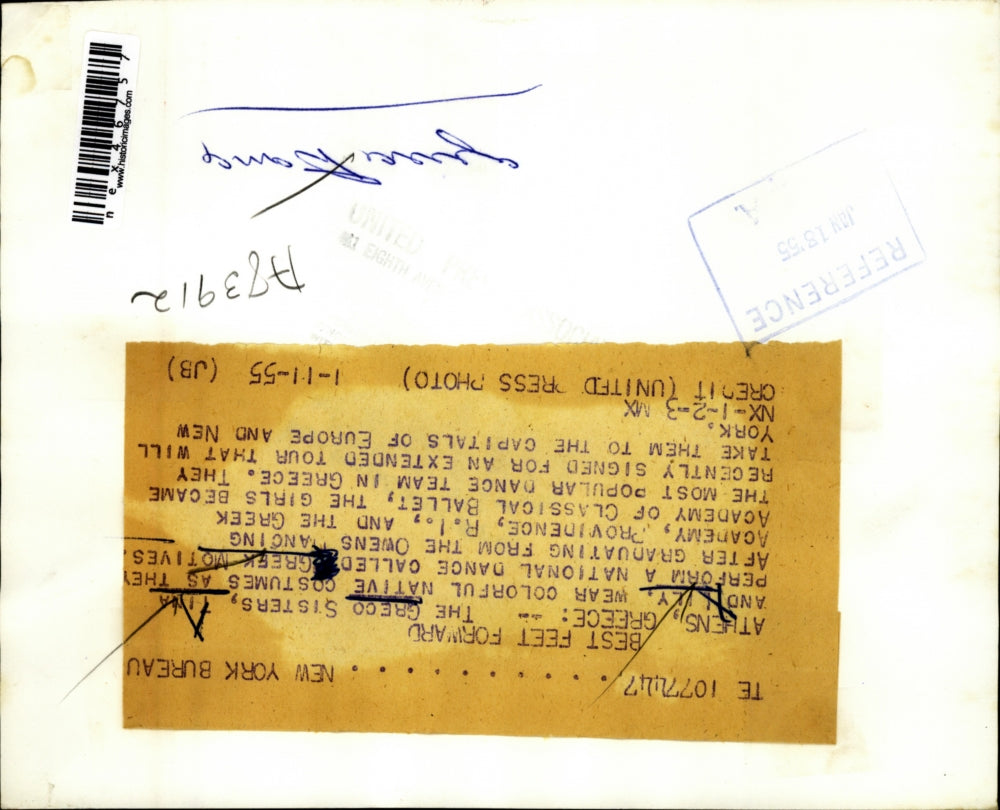 TE 1077447 . . . . . . . . . . . NEW YORK BUREAU
BEST FEET FORWARD
ATHENS, GREECE: -- THE GRECO SISTERS,
AND WEAR COLORFUL NATIVE COSTUMES AS THEY
PERFORM A NATIONAL DANCE CALLED GREEK MOTIVES.
AFTER GRADUATING FROM THE OWENS DANCING
ACADEMY, PROVIDENCE, R.I., AND THE GREEK
ACADEMY OF CLASSICAL BALLET, THE GIRLS BECAME
THE MOST POPULAR DANCE TEAM IN GREECE. THEY
RECENTLY SIGNED FOR AN EXTENDED TOUR THAT WILL
TAKE THEM TO THE CAPITALS OF EUROPE AND NEW
YORK.
NX-1-2-3 MX
CREDIT (UNITED PRESS PHOTO) 1-11-55 (JB)
A83912
REFERENCE
JAN 18 '55
A.
UNITED
461 EIGHTH AVE
nex46757
www.historicimages.com